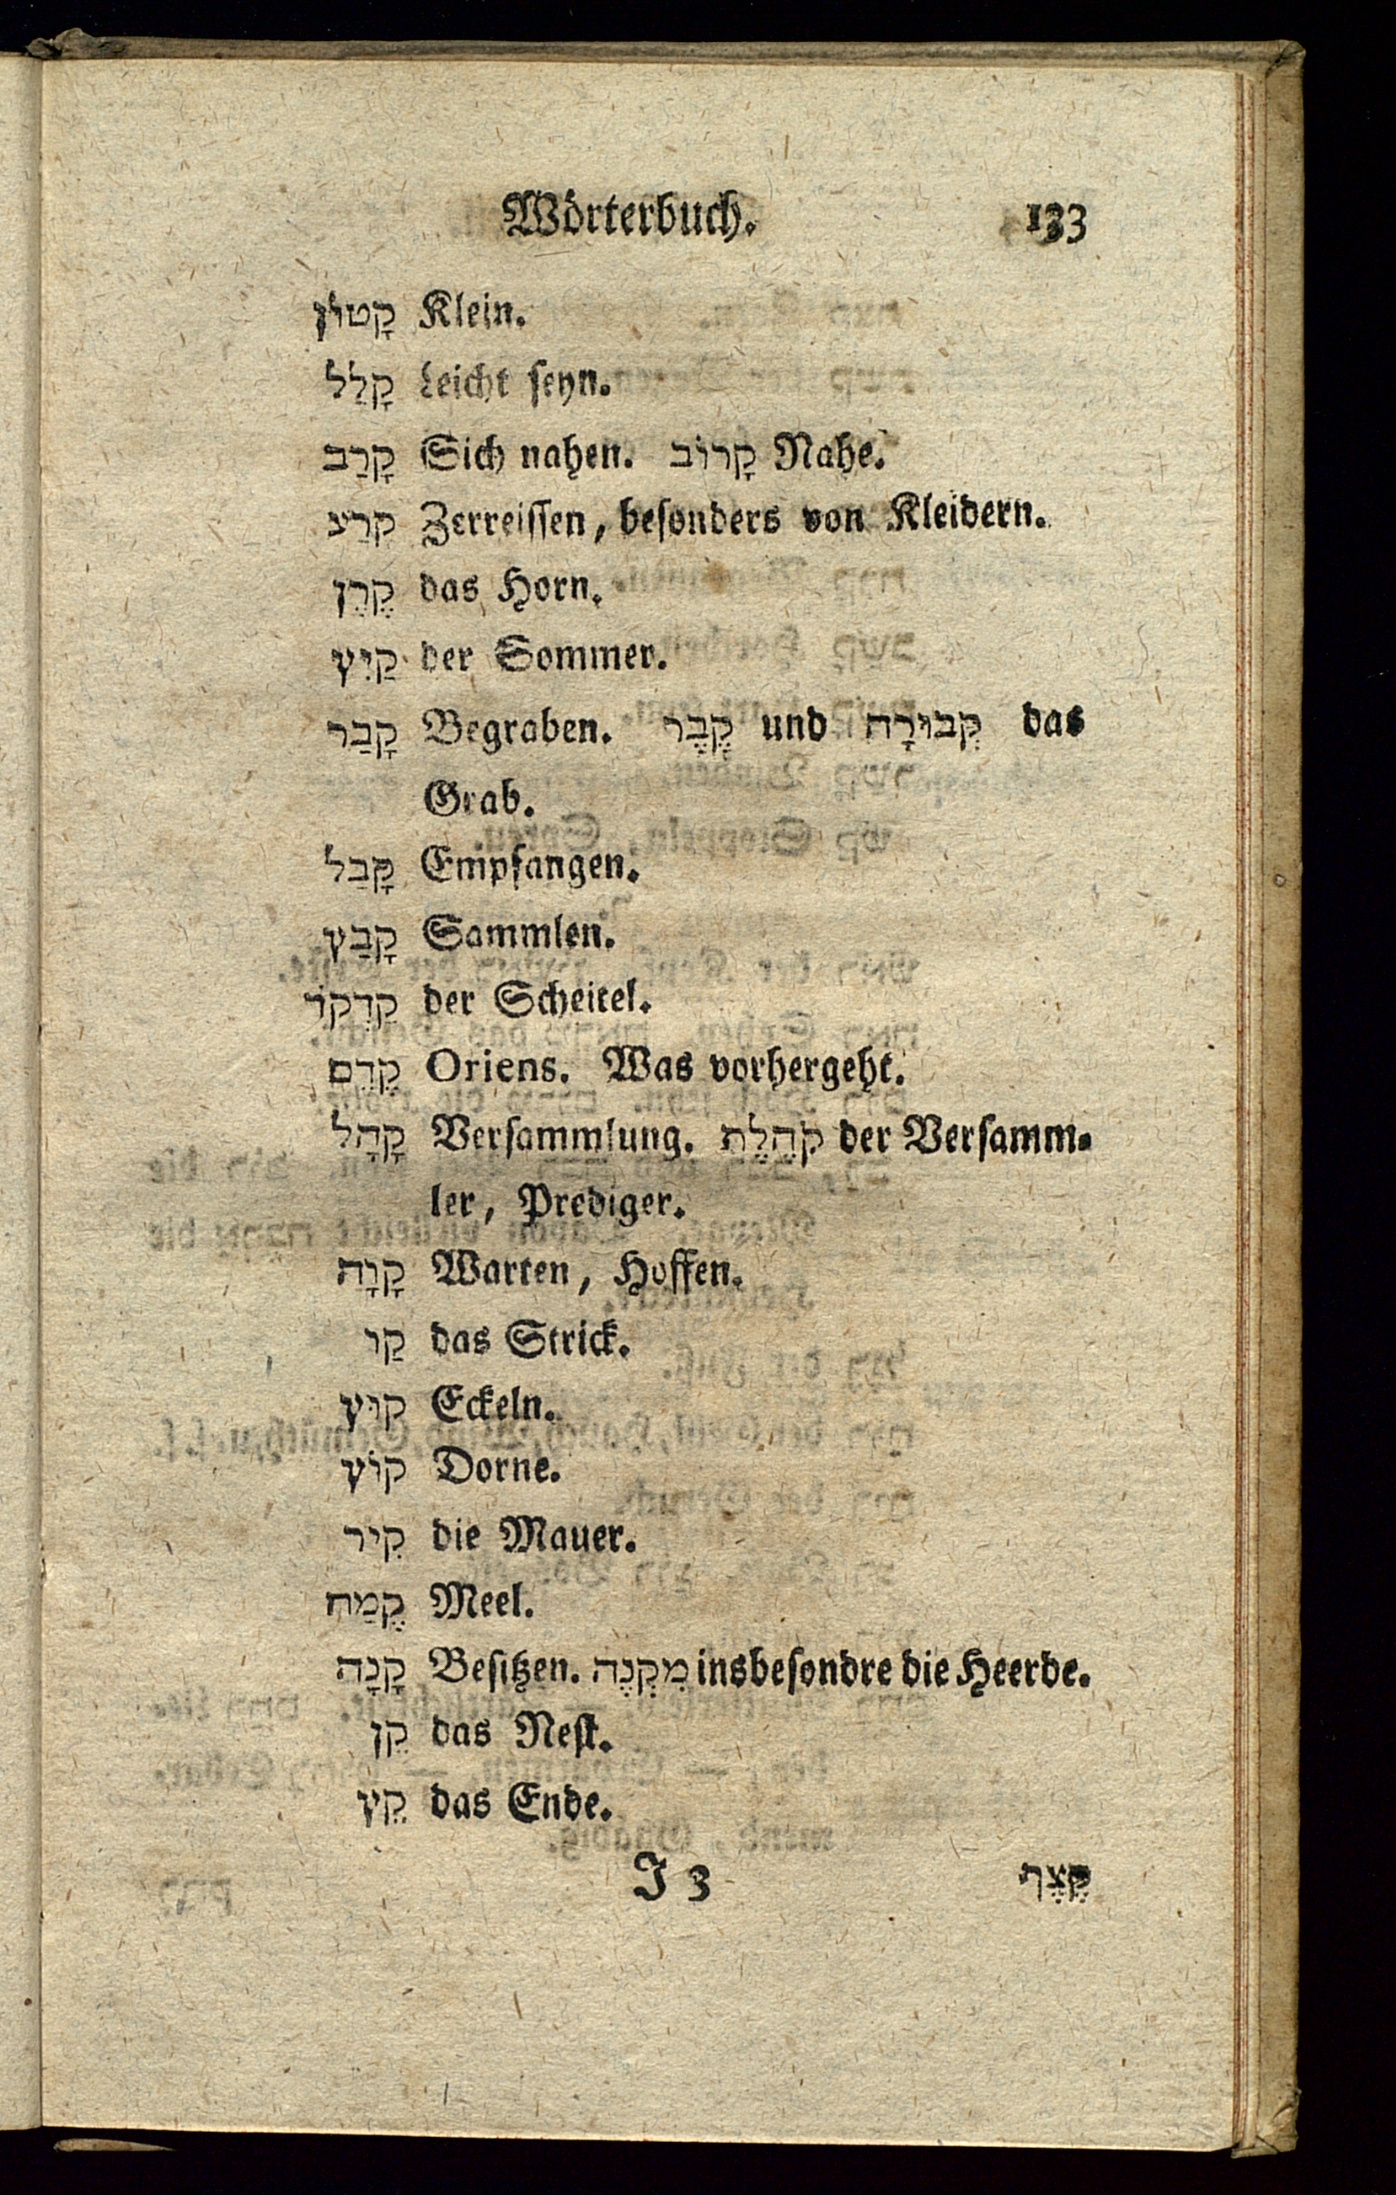 Wörterbuch. 133
קָטוֹן Klein.
קָלַל Leicht seyn.
קָרַב Sich nahen. קָרוֹב Nahe.
קרַע Zerreissen, besonders von Kleidern.
קֶרֶן das Horn.
קַיִץ der Sommer.
קָבַר Begraben. קֶבֶר und קְבוּרָה das
Grab.
קָבַל Empfangen.
קָבַץ Sammlen.
קַדְקֹד der Scheitel.
קֶדֶם Oriens. Was vorhergeht.
קָהָל Versammlung. קֹהֶלֶת der Versamm-
ler, Prediger.
קָוָה Warten, Hoffen.
קַו das Strick.
קוּץ Eckeln.
קוֹץ Dorne.
קִיר die Mauer.
קֶמַח Meel.
קָנָה Besitzen. מִקְנֶה insbesondre die Heerde.
קֵן das Nest.
קֵץ das Ende.
J 3 קֶצֶף